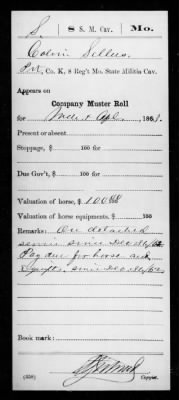 S. | 8 S. M. Cav. | Mo.
Colvin Sellers
Pvt, Co. K, 8 Reg't Mo. State Militia Cav.
Appears on
Company Muster Roll
for Mch & Apl, 1863.
Present or absent
Stoppage, $ 100 for
Due Gov't, $ 100 for
Valuation of horse, $ 100 00/100
Valuation of horse equipments, $ 100
Remarks: On detached
service since Dec 16/62
Pay due for horse and
Equipts. since Dec 16/62
Book mark:
(358)
Copyist.